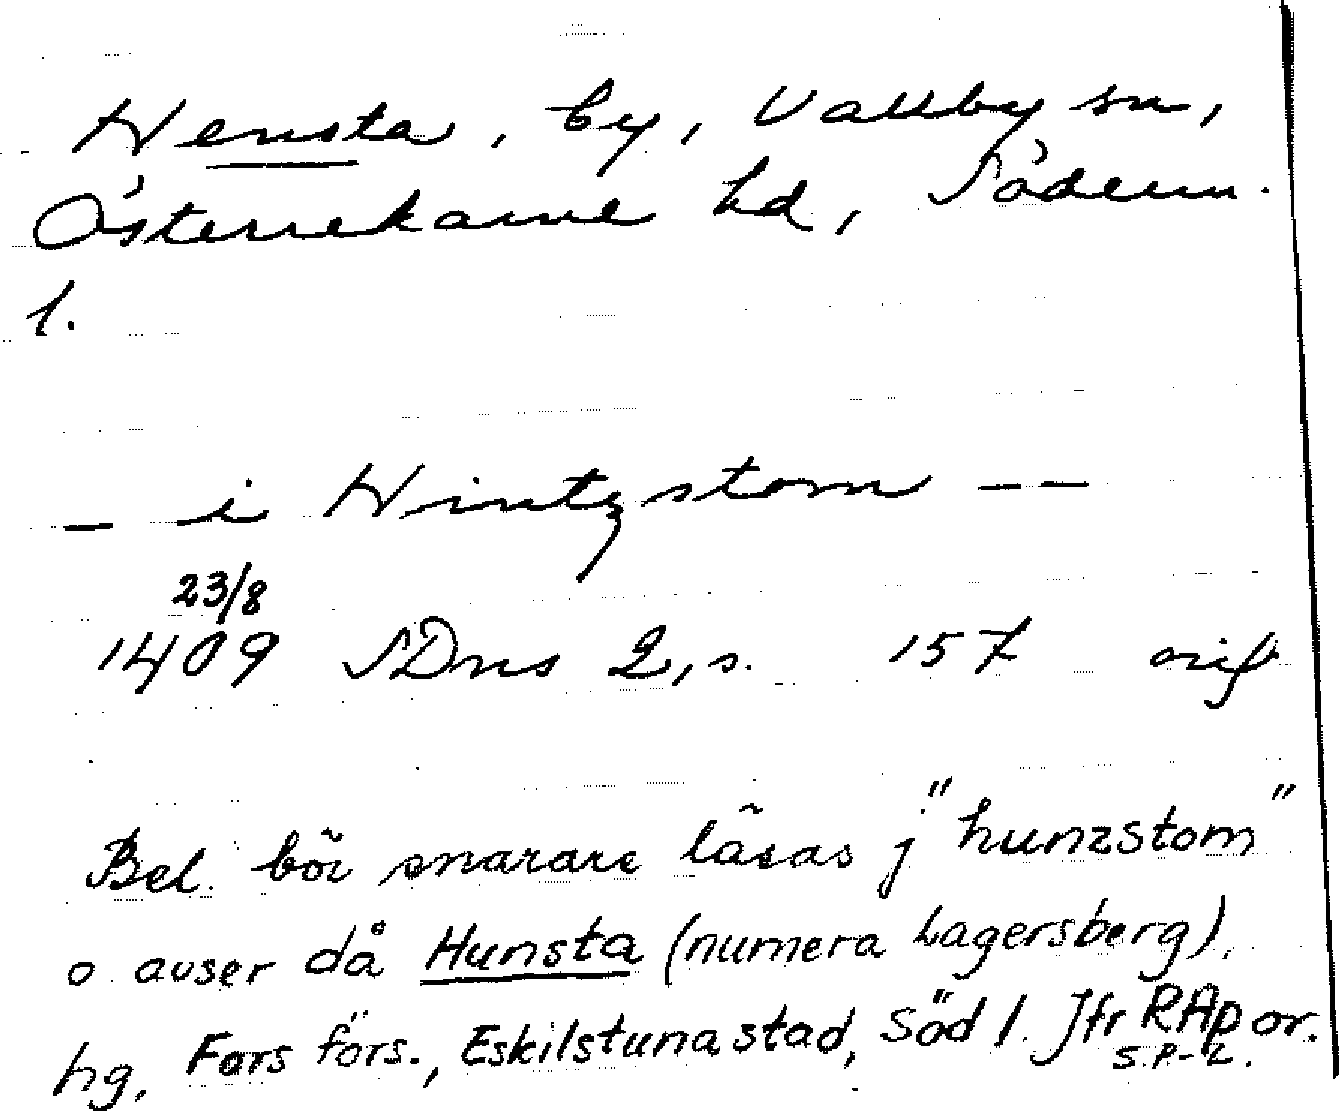 Hensta, by, Vallby sn,
Österrekarne hd, Söderm.
l.
— i Hintzstom — —
23/8
1409 SDns 2, s. 157 orig
Bel. bör snarare läsas j "hunzstom"
o. avser då Hunsta (numera Lagersberg),
hg, Fors förs., Eskilstuna stad, Söd l. Jfr RAp or.
S.P-L.